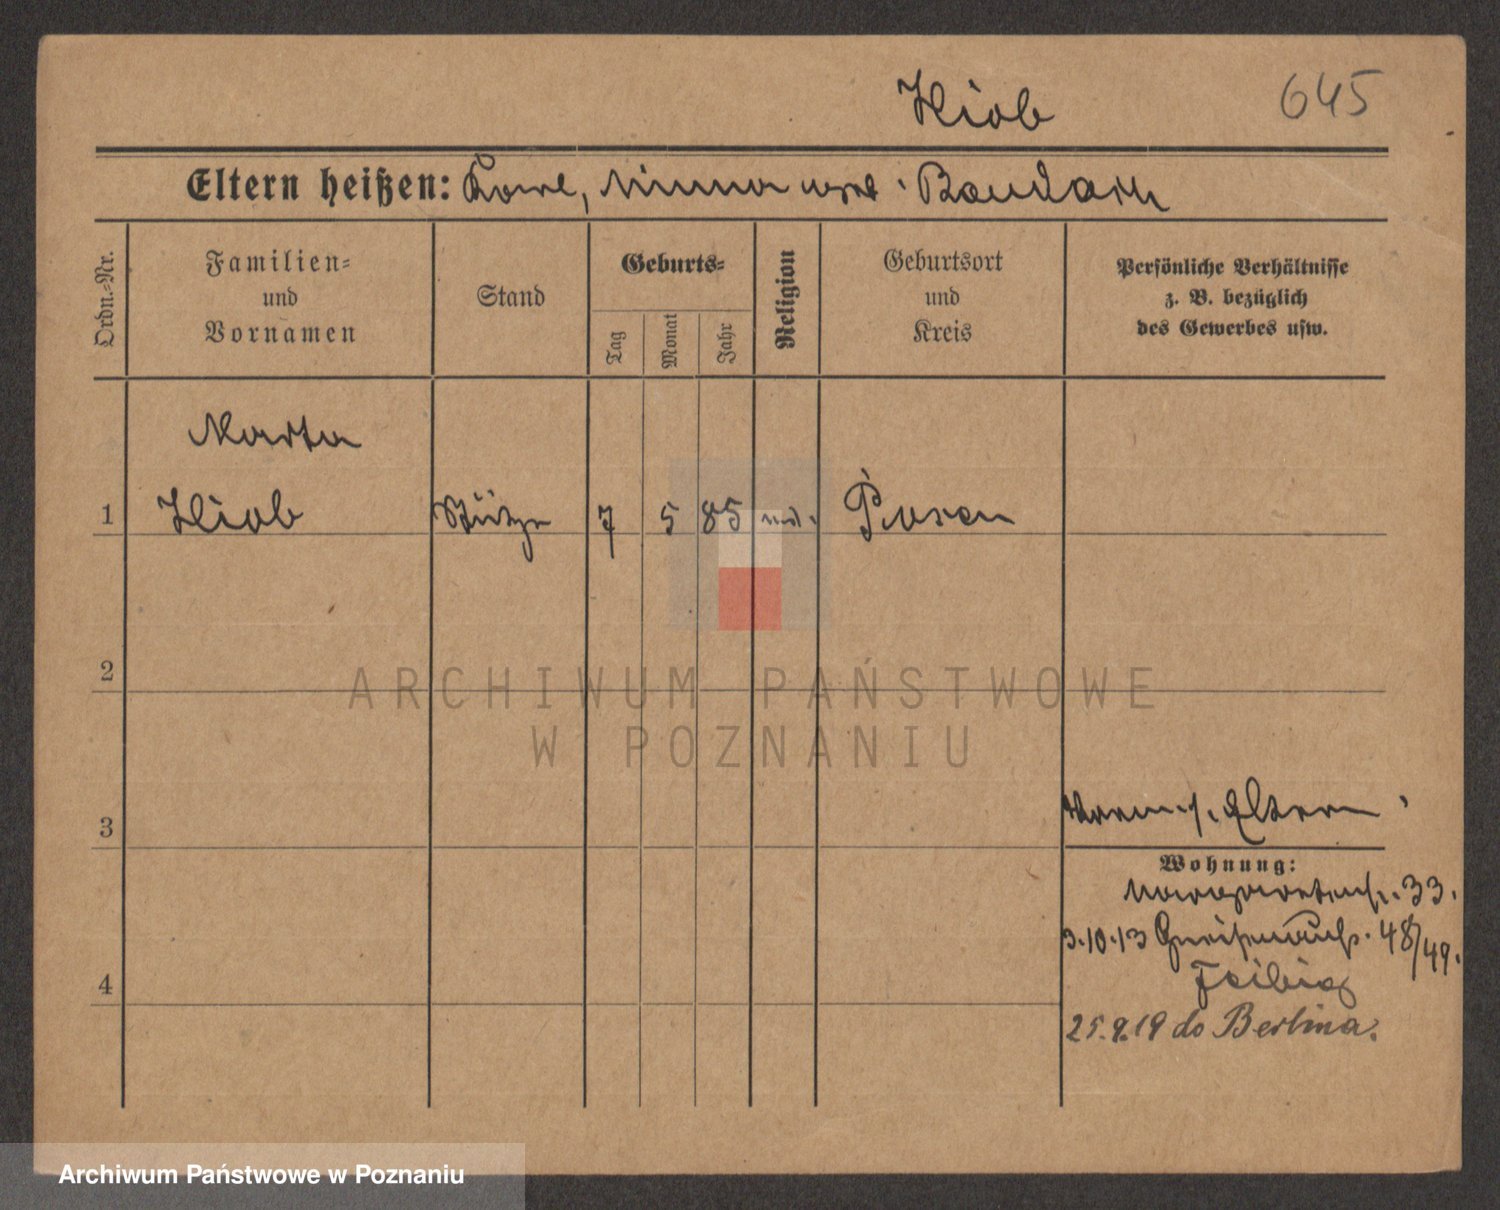 Hiob 645
Eltern heißen: Karl, Minna geb. Baudach
Ordn.-Nr.
Familien-
und
Vornamen
Stand
Geburts-
Tag
Monat
Jahr
Religion
Geburtsort
und
Kreis
Persönliche Verhältnisse
z. B. bezüglich
des Gewerbes usw.
Marta
1 Hiob Stütze 7 5 85 Posen
2
3
Eltern
Wohnung:
33.
3.10.13 Gneisenaustr. 48/49.
Feibig
4
25.9.19 do Berlina.
ARCHIWUM PAŃSTWOWE
W POZNANIU
Archiwum Państwowe w Poznaniu